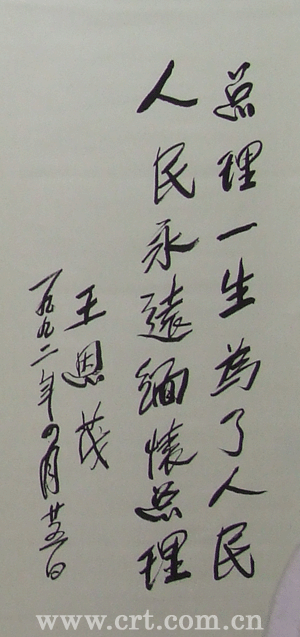 总理一生為了人民
人民永遠緬懷总理
王恩茂
一九九二年四月廿五日
www.crt.com.cn